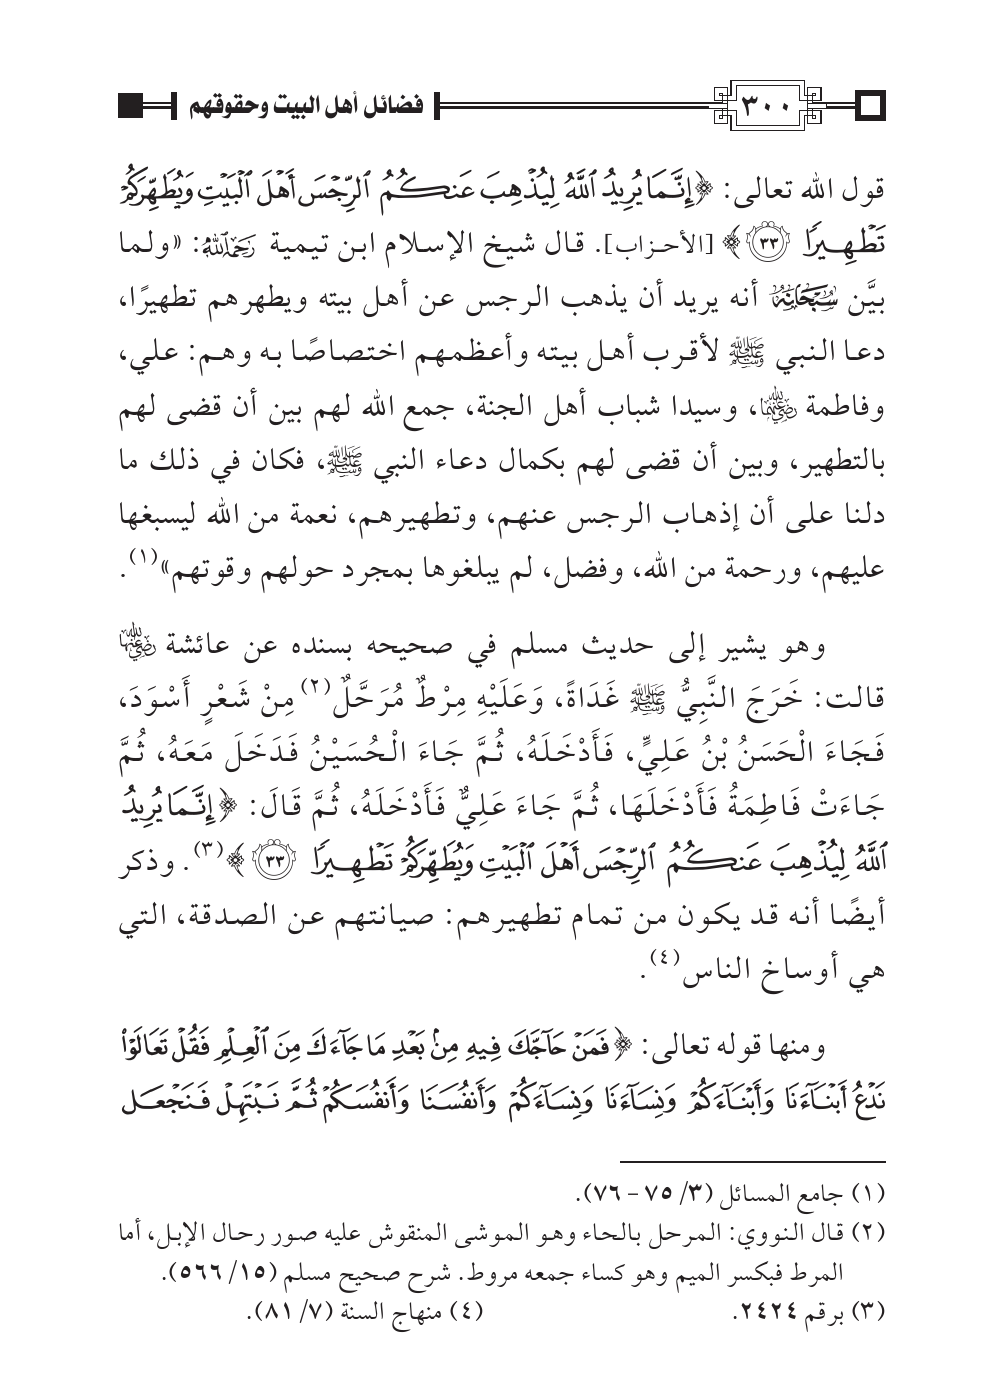 ٣٠٠
فضائل أهل البيت وحقوقهم
قول الله تعالى: ﴿إِنَّمَا يُرِيدُ ٱللَّهُ لِيُذْهِبَ عَنكُمُ ٱلرِّجْسَ أَهْلَ ٱلْبَيْتِ وَيُطَهِّرَكُمْ
تَطْهِيرًا ٣٣﴾ [الأحزاب]. قال شيخ الإسلام ابن تيمية رَحِمَهُ اللَّهُ: «ولما
بيَّن سُبْحَانَهُ أنه يريد أن يذهب الرجس عن أهل بيته ويطهرهم تطهيرًا،
دعا النبي ﷺ لأقرب أهل بيته وأعظمهم اختصاصًا به وهم: علي،
وفاطمة رضي الله عنهما، وسيدا شباب أهل الجنة، جمع الله لهم بين أن قضى لهم
بالتطهير، وبين أن قضى لهم بكمال دعاء النبي ﷺ، فكان في ذلك ما
دلنا على أن إذهاب الرجس عنهم، وتطهيرهم، نعمة من الله ليسبغها
عليهم، ورحمة من الله، وفضل، لم يبلغوها بمجرد حولهم وقوتهم»(١).
وهو يشير إلى حديث مسلم في صحيحه بسنده عن عائشة رضي الله عنها
قالت: خَرَجَ النَّبِيُّ ﷺ غَدَاةً، وَعَلَيْهِ مِرْطٌ مُرَحَّلٌ(٢) مِنْ شَعْرٍ أَسْوَدَ،
فَجَاءَ الْحَسَنُ بْنُ عَلِيٍّ، فَأَدْخَلَهُ، ثُمَّ جَاءَ الْحُسَيْنُ فَدَخَلَ مَعَهُ، ثُمَّ
جَاءَتْ فَاطِمَةُ فَأَدْخَلَهَا، ثُمَّ جَاءَ عَلِيٌّ فَأَدْخَلَهُ، ثُمَّ قَالَ: ﴿إِنَّمَا يُرِيدُ
ٱللَّهُ لِيُذْهِبَ عَنكُمُ ٱلرِّجْسَ أَهْلَ ٱلْبَيْتِ وَيُطَهِّرَكُمْ تَطْهِيرًا ٣٣﴾(٣). وذكر
أيضًا أنه قد يكون من تمام تطهيرهم: صيانتهم عن الصدقة، التي
هي أوساخ الناس(٤).
ومنها قوله تعالى: ﴿فَمَنْ حَآجَّكَ فِيهِ مِنۢ بَعْدِ مَا جَآءَكَ مِنَ ٱلْعِلْمِ فَقُلْ تَعَالَوْا۟
نَدْعُ أَبْنَآءَنَا وَأَبْنَآءَكُمْ وَنِسَآءَنَا وَنِسَآءَكُمْ وَأَنفُسَنَا وَأَنفُسَكُمْ ثُمَّ نَبْتَهِلْ فَنَجْعَل
(١) جامع المسائل (٣/ ٧٥ – ٧٦).
(٢) قال النووي: المرحل بالحاء وهو الموشى المنقوش عليه صور رحال الإبل، أما
المرط فبكسر الميم وهو كساء جمعه مروط. شرح صحيح مسلم (١٥/ ٥٦٦).
(٣) برقم ٢٤٢٤. (٤) منهاج السنة (٧/ ٨١).